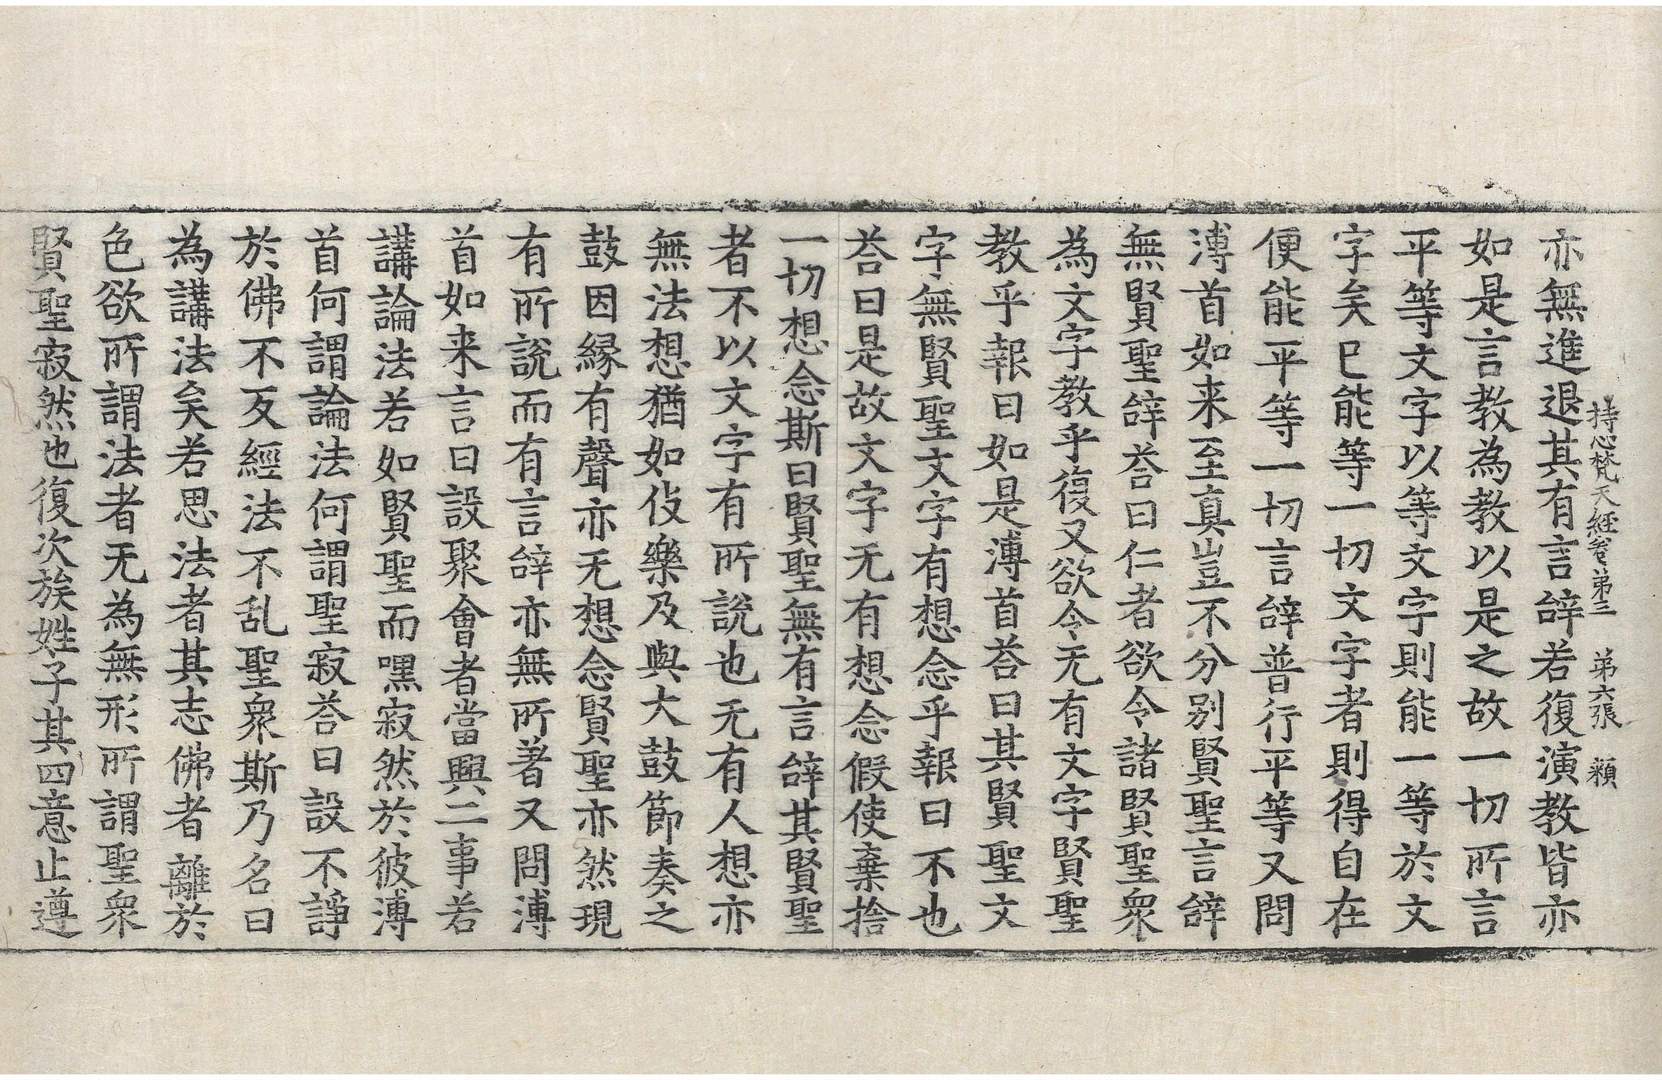 持心梵天經卷第三　第六張　賴
亦無進退其有言辝若復演教皆亦
如是言教為教以是之故一切所言
平等文字以等文字則能一等於文
字矣已能等一切文字者則得自在
便能平等一切言辝普行平等又問
溥首如来至真豈不分别賢聖言辝
無賢聖辝荅曰仁者欲令諸賢聖衆
為文字教乎復又欲令无有文字賢聖
教乎報曰如是溥首荅曰其賢聖文
字無賢聖文字有想念乎報曰不也
荅曰是故文字无有想念假使棄捨
一切想念斯曰賢聖無有言辝其賢聖
者不以文字有所說也无有人想亦
無法想猶如伎樂及與大鼓節奏之
鼓因緣有聲亦无想念賢聖亦然現
有所說而有言辝亦無所著又問溥
首如来言曰設聚會者當興二事若
講論法若如賢聖而嘿寂然於彼溥
首何謂論法何謂聖寂荅曰設不諍
於佛不反經法不乱聖衆斯乃名曰
為講法矣若思法者其志佛者離於
色欲所謂法者无為無形所謂聖衆
賢聖寂然也復次族姓子其四意止遵